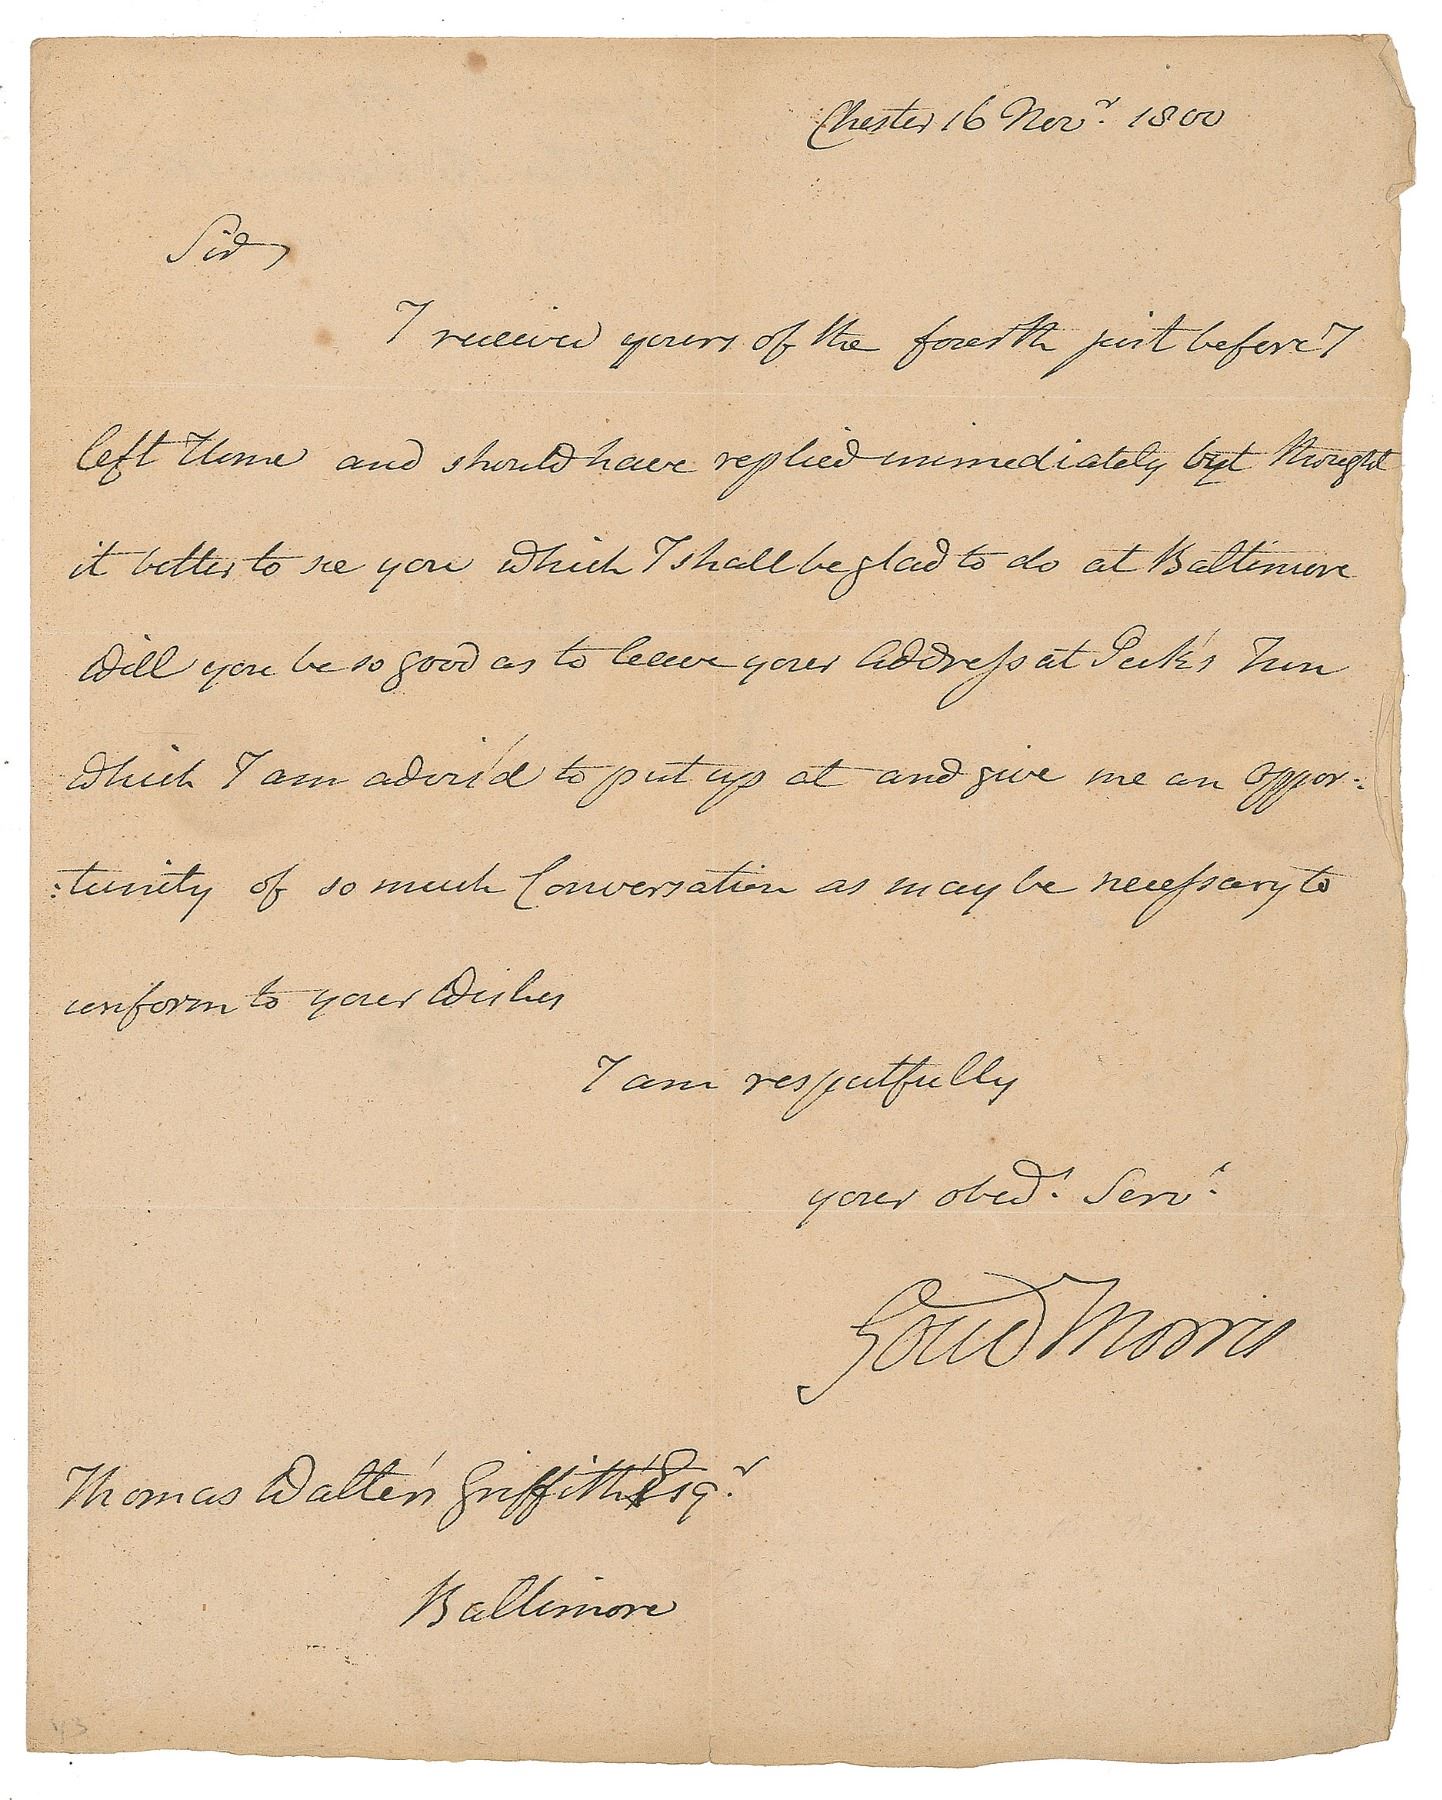 Chester 16 Novr. 1800
Sir,
I received yours of the fourth just before I
left Home and should have replied immediately but thought
it better to see you which I shall be glad to do at Baltimore
Will you be so good as to leave your Address at Peck's Inn
which I am advis'd to put up at and give me an oppor:
:tunity of so much Conversation as may be necessary to
conform to your Wishes
I am respectfully
your obedt. Servt.
Gouv Morris
Thomas Walter Griffith Esqr.
Baltimore